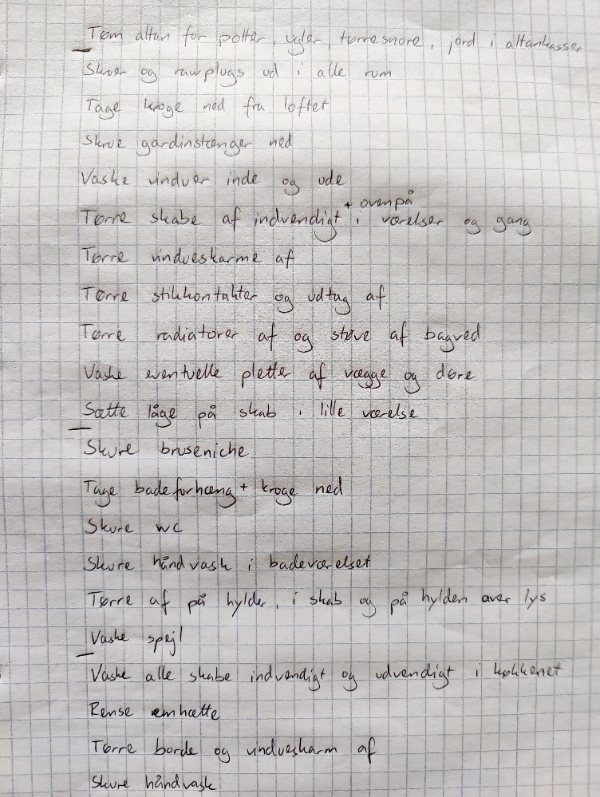 Tøm altan for potter, ugler, tørresnore, jord i altankasser
Skruer og rawplugs ud i alle rum
Tage kroge ned fra loftet
Skrue gardinstænger ned
Vaske vinduer inde og ude
+ ovenpå
Tørre skabe af indvendigt i værelser og gang
Tørre vindueskarme af
Tørre stikkontakter og udtag af
Tørre radiatorer af og støve af bagved
Vaske eventuelle pletter af vægge og døre
Sætte låge på skab i lille værelse
Skure bruseniche
Tage badeforhæng + kroge ned
Skure wc
Skure håndvask i badeværelset
Tørre af på hylder, i skab og på hylden over lys
Vaske spejl
Vaske alle skabe indvendigt og udvendigt i køkkenet
Rense emhætte
Tørre borde og vindueskarm af
Skure håndvask